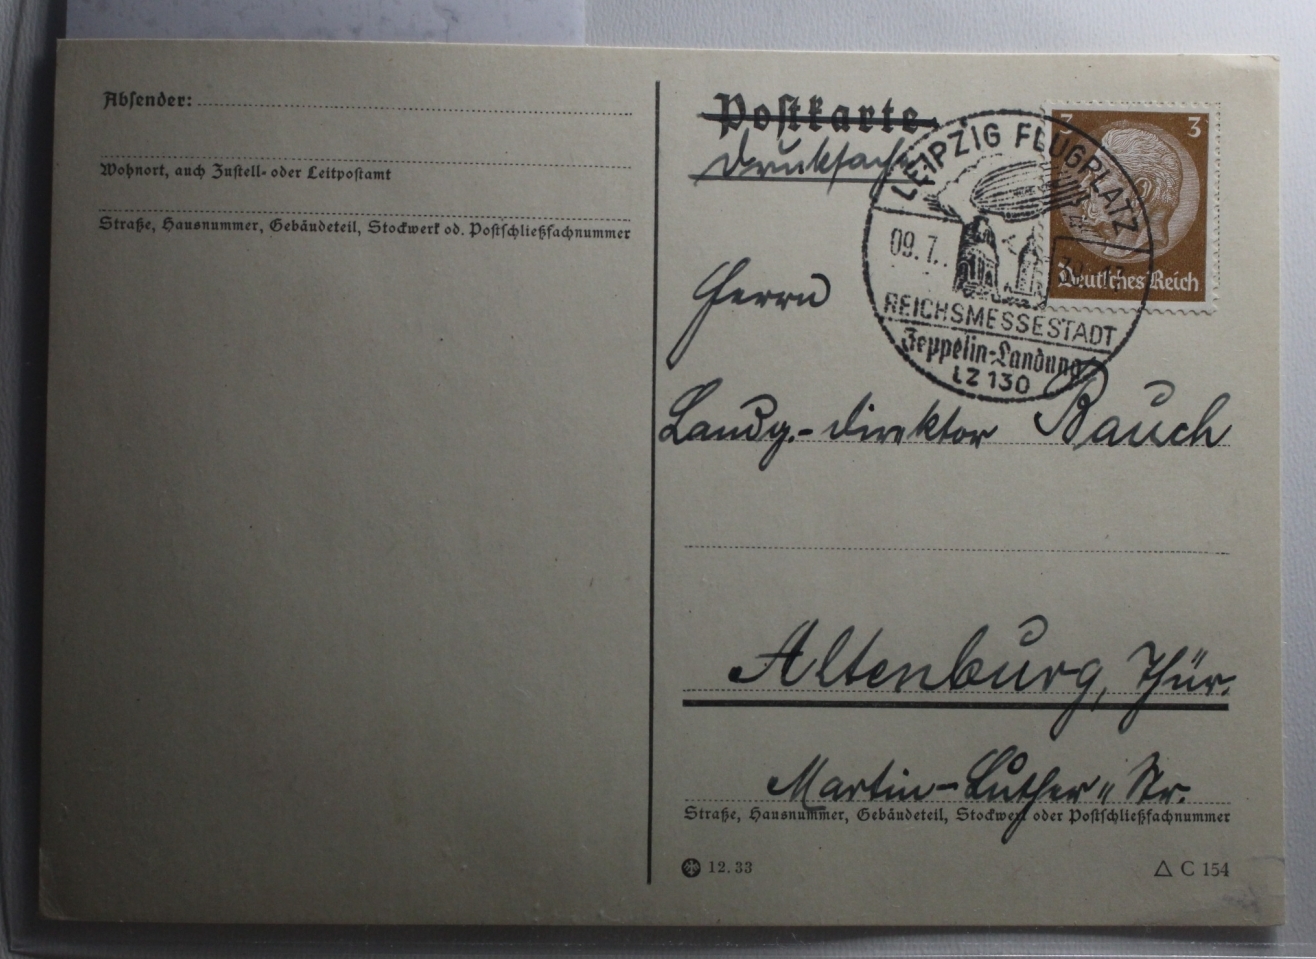 Absender:
Wohnort, auch Zustell- oder Leitpostamt
Straße, Hausnummer, Gebäudeteil, Stockwerk od. Postschließfachnummer
Postkarte
Drucksache
3 3
Deutsches Reich
LEIPZIG FLUGPLATZ
09.7.
REICHSMESSESTADT
Zeppelin-Landung
LZ 130
Herrn
Landg.-direktor Rauch
Altenburg, Thür.
Martin-Luther-Str.
Straße, Hausnummer, Gebäudeteil, Stockwerk oder Postschließfachnummer
12.33
C 154